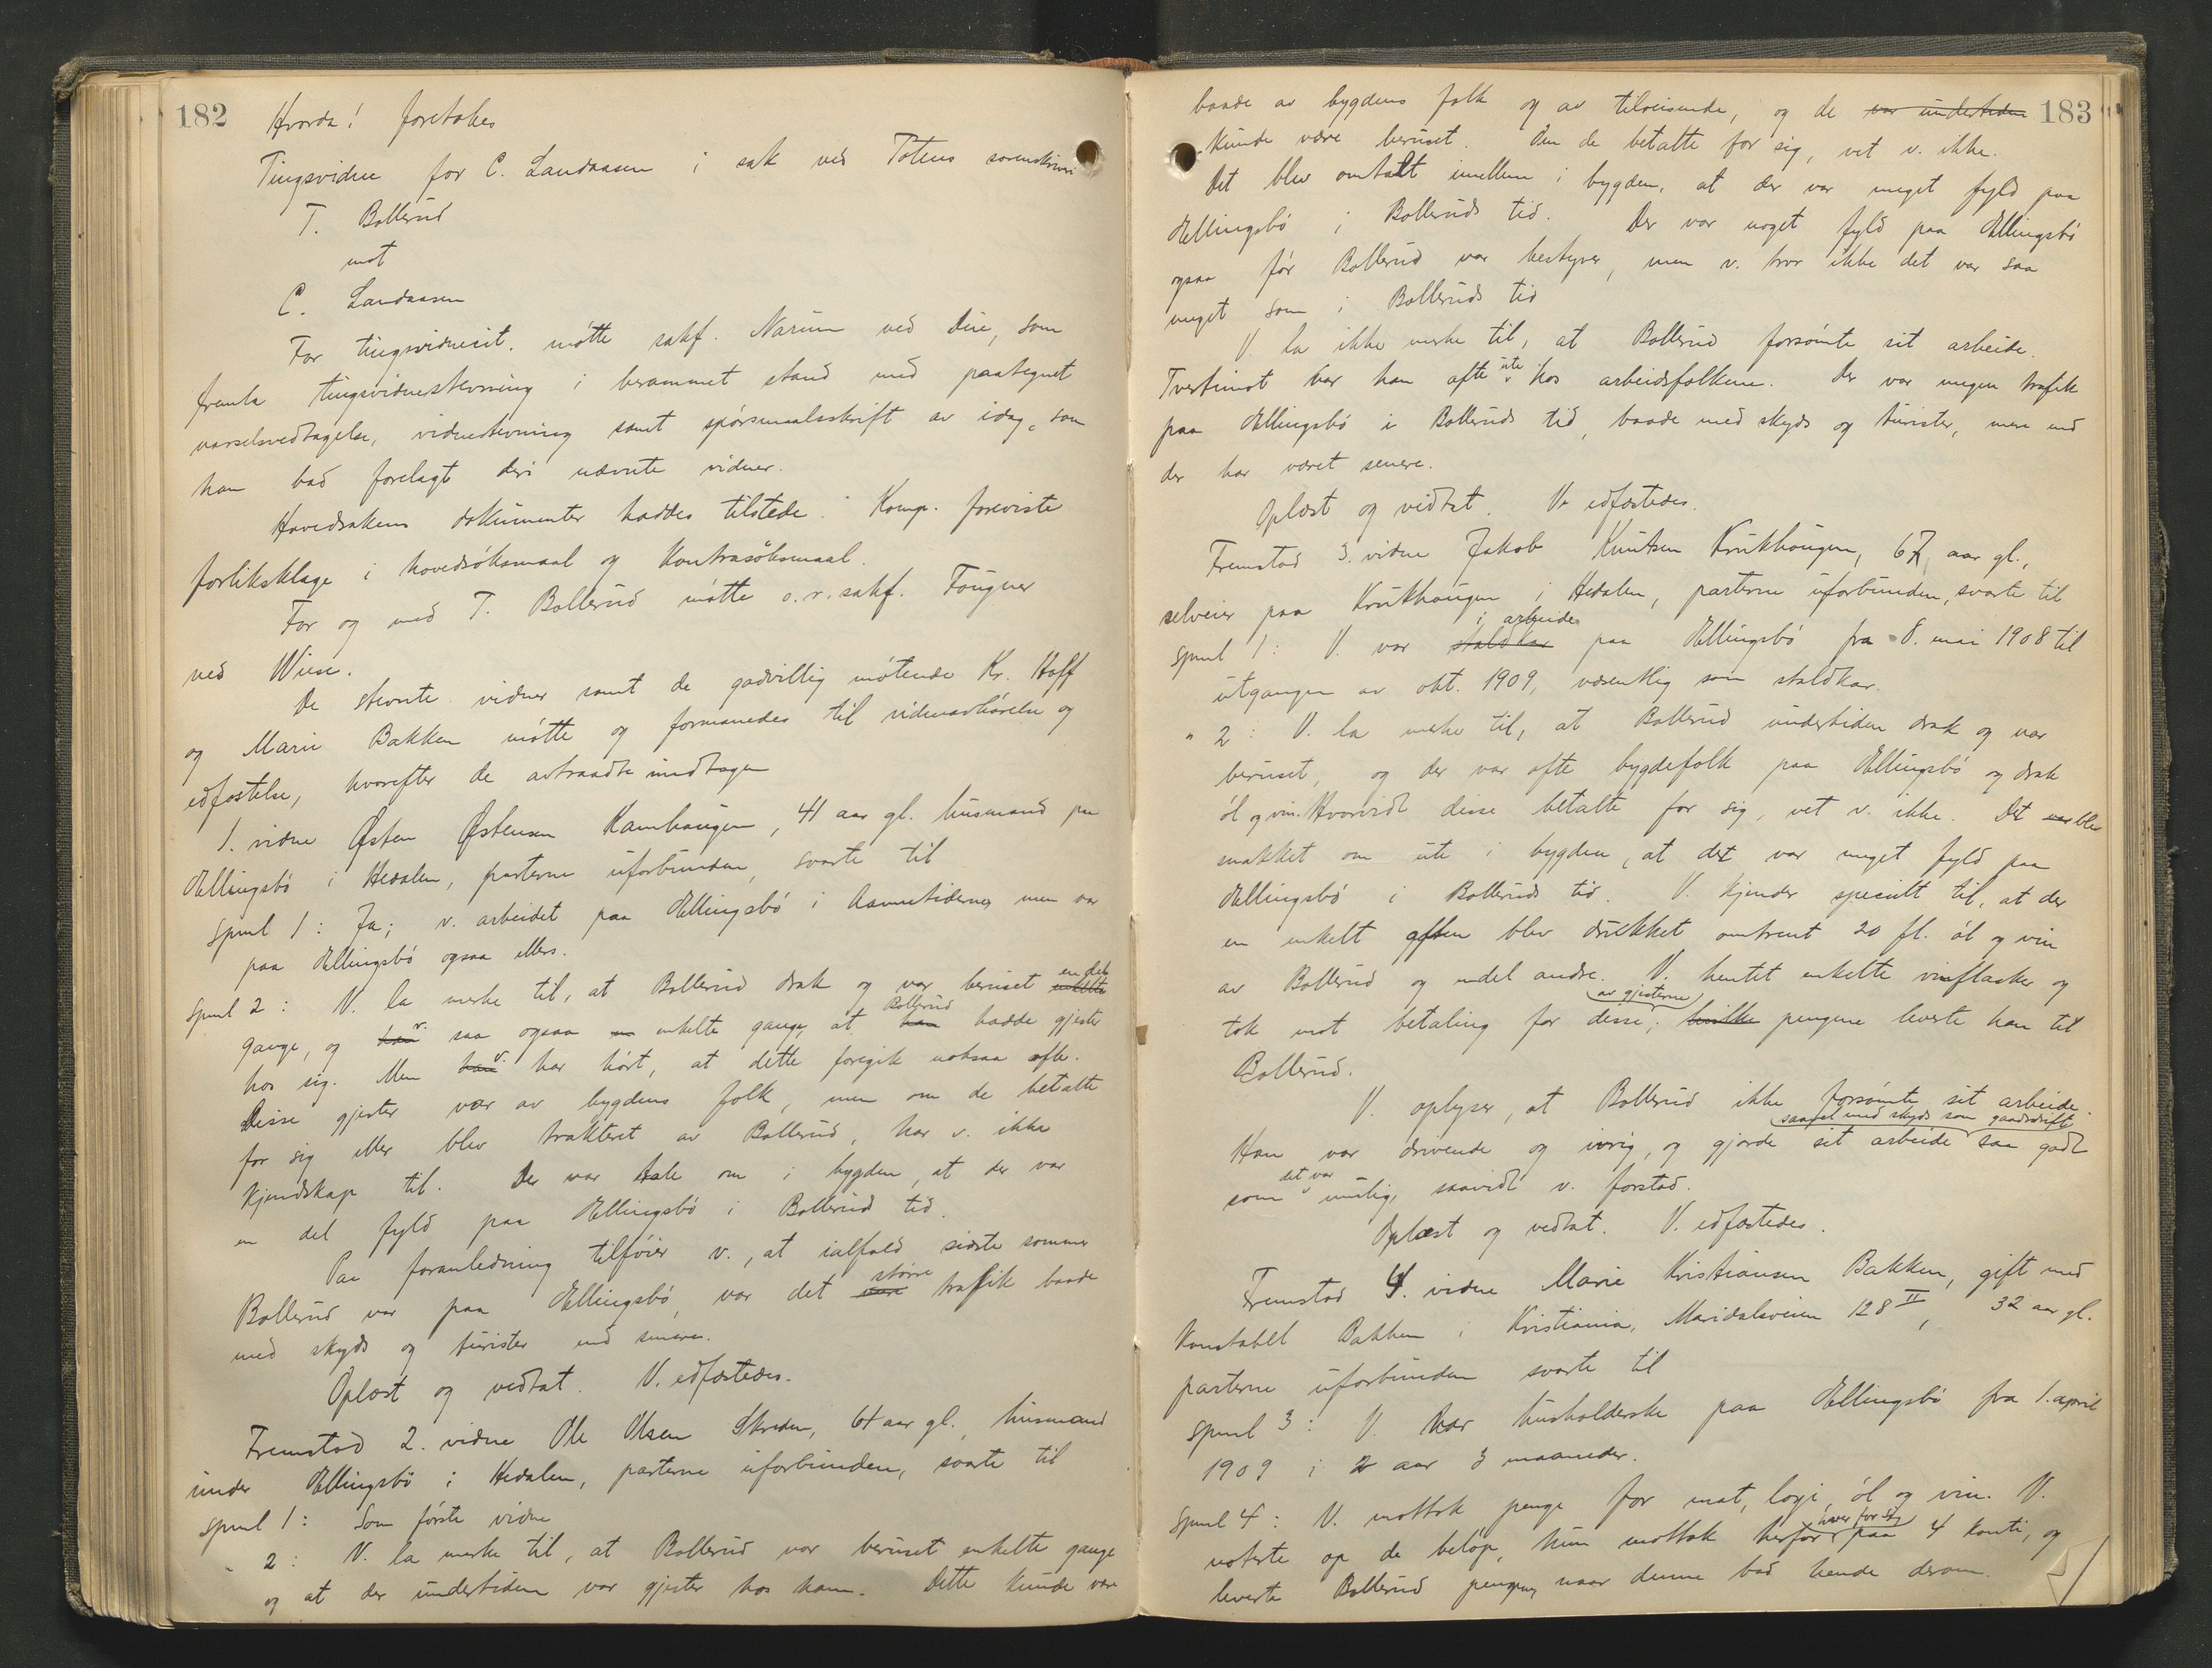 182
Hvorda! foretokes
Tingsvidne for C. Landaasen i sak ved Totens sorenskriveri
T. Bollerud
mot
C. Landaasen
For tingsvidnecit. møtte sakf. Narum ved Due, som
fremla tingsvidnestevning i berammet stand med paategnet
varselsvedtagelse, vidnestevning samt spørsmaalsskrift av idag, som
han bad forelagt deri nævnte vidner.
Hovedsakens dokumenter haddes tilstede. Komp. foreviste
forliksklage i hovedsøksmaal og kontrasøksmaal.
For og med T. Bollerud møtte o.r.sakf. Fougner
ved Wiese.
De stevnte vidner samt de godvillig møtende Kr. Hoff
og Marie Bakken møtte og formanedes til vidneavhørelse og
edfæstelse, hvorefter de avtraadte undtagen
1. vidne Østen Østensen Kamhaugen, 41 aar gl. husmand paa
Ellingsbø i Hedalen, parterne uforbunden, svarte til
spml 1: Ja; v. arbeidet paa Ellingsbø i aannetiderne, men var
paa Ellingsbø ogsaa ellers.
spml 2: V. la merke til, at Bollerud drak og var beruset enkelte en del
gange, og han v. saa ogsaa en enkelte gange, at han Bollerud hadde gjester
hos sig. Men han v. har hørt, at dette foregik noksaa ofte.
Disse gjester var av bygdens folk, men om de betalte
for sig eller blev trakteret av Bollerud, har v. ikke
kjendskap til. Der var tale om i bygden, at der var
en del fyld paa Ellingsbø i Bollerud tid.
Paa foranledning tilføier v., at ialfald sidste sommer
Bollerud var paa Ellingsbø, var det større trafik baade
med skyds og turister end senere.
Oplæst og vedtat. V. edfæstedes.
Fremstod 2. vidne Ole Olsen Skreden, 61 aar gl., husmand
under Ellingsbø i Hedalen, parterne uforbunden, svarte til
spml 1: Som første vidne
" 2: V. la merke til, at Bollerud var beruset enkelte gange
og at der undertiden var gjester hos ham. Dette kunde være
183
baade av bygdens folk og av tilreisende, og de var undertiden
kunde være beruset. Om de betalte for sig, vet v. ikke.
Det blev omtalt imellem i bygden, at der var meget fyld paa
Ellingsbø i Bolleruds tid. Der var noget fyld paa Ellingsbø
ogsaa før Bollerud var bestyrer, men v. tror ikke det var saa
meget som i Bolleruds tid
V. la ikke merke til, at Bollerud forsømte sit arbeide.
Tvertimot var han ofte ute hos arbeidsfolkene. Der var megen trafik
paa Ellingsbø i Bolleruds tid, baade med skyds og turister, mere end
der har været senere.
Oplæst og vedtat. V. edfæstedes.
Fremstod 3. vidne Jakob Knutsen Krukhaugen, 67 aar gl.,
selveier paa Krukhaugen i Hedalen, parterne uforbunden, svarte til
spml 1: V. var staldkar i arbeide paa Ellingsbø fra 8. mai 1908 til
utgangen av okt. 1909, væsentlig som staldkar.
" 2: V. la merke til, at Bollerud undertiden drak og var
beruset, og der var ofte bygdefolk paa Ellingsbø og drak
øl og vin. Hvorvidt disse betalte for sig, vet v. ikke. Det var blev
snakket om ute i bygden, at det var meget fyld paa
Ellingsbø i Bolleruds tid. V. kjender specielt til, at der
en enkelt aften blev drukket omtrent 20 fl. øl og vin
av Bollerud og endel andre. V. hentet enkelte vinflasker og
tok mot betaling for disse av gjesterne; hvilke pengene leverte han til
Bollerud.
V. oplyser, at Bollerud ikke forsømte sit arbeide.
Han var drivende og ivrig, og gjorde sit arbeide saavel med skyds som gaardsdrift saa godt
som det var mulig, saavidt v. forstod.
Oplæst og vedtat. V. edfæstedes.
Fremstod 4. vidne Marie Kristiansen Bakken, gift med
konstabel Bakken i Kristiania, Maridalsveien 128 II, 32 aar gl.
parterne uforbunden svarte til
spml 3: V. var husholderske paa Ellingsbø fra 1. april
1909 i 2 aar 3 maaneder.
spml 4: V. mottok penge for mat, logi, øl og vin. V.
noterte op de beløp, hun mottok herfor hver for sig paa 4 konti, og
leverte Bollerud pengene, naar denne bad hende derom.